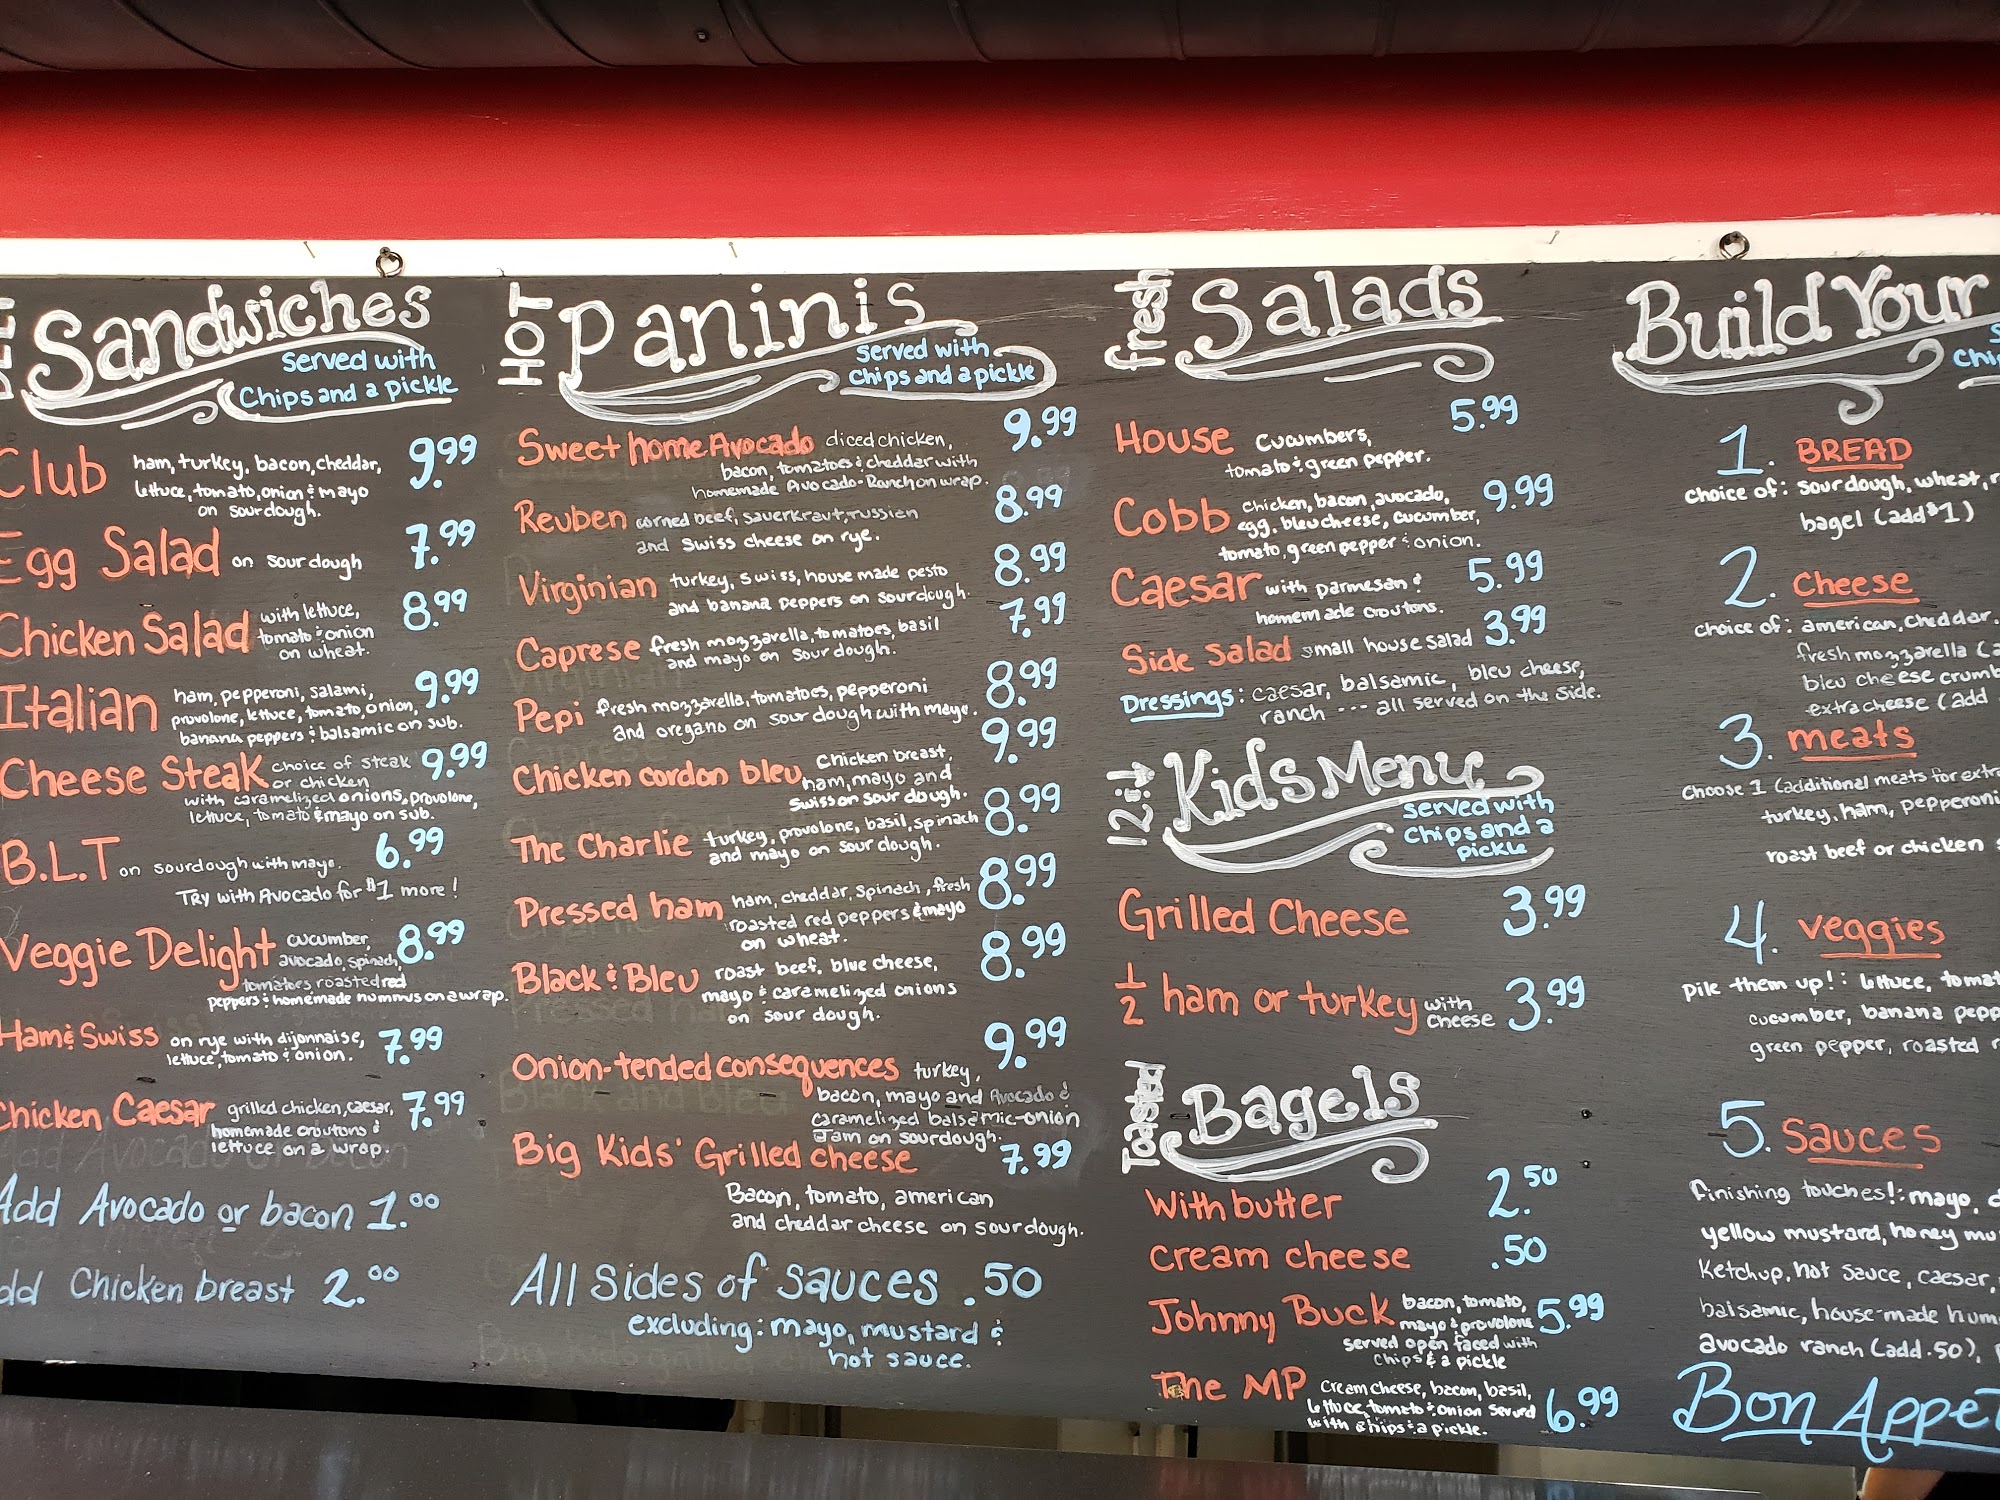 Sandwiches
served with
Chips and a pickle
Club ham, turkey, bacon, cheddar, 9.99
lettuce, tomato, onion & mayo
on sourdough.
Egg Salad on sourdough 7.99
Chicken Salad with lettuce, 8.99
tomato & onion
on wheat.
Italian ham, pepperoni, salami, 9.99
provolone, lettuce, tomato, onion,
banana peppers & balsamic on sub.
Cheese Steak choice of steak 9.99
or chicken
with caramelized onions, provolone,
lettuce, tomato & mayo on sub.
B.L.T on sourdough with mayo. 6.99
Try with Avocado for $1 more!
Veggie Delight cucumber, 8.99
avocado, spinach,
tomatoes roasted red
peppers & homemade hummus on a wrap.
Ham & Swiss on rye with dijonnaise, 7.99
lettuce, tomato & onion.
Chicken Caesar grilled chicken, caesar, 7.99
homemade croutons &
lettuce on a wrap.
Add Avocado or bacon 1.00
Add Chicken breast 2.00
HOT Paninis
served with
Chips and a pickle
Sweet home Avocado diced chicken, 9.99
bacon, tomatoes & cheddar with
homemade Avocado-Ranch on wrap.
Reuben corned beef, sauerkraut, russian 8.99
and swiss cheese on rye.
Virginian turkey, swiss, house made pesto 8.99
and banana peppers on sourdough.
Caprese fresh mozzarella, tomatoes, basil 7.99
and mayo on sourdough.
Pepi fresh mozzarella, tomatoes, pepperoni 8.99
and oregano on sourdough with mayo.
Chicken cordon bleu Chicken breast, 9.99
ham, mayo and
swiss on sourdough.
The Charlie turkey, provolone, basil, spinach 8.99
and mayo on sourdough.
Pressed ham ham, cheddar, spinach, fresh 8.99
roasted red peppers & mayo
on wheat.
Black & Bleu roast beef, blue cheese, 8.99
mayo & caramelized onions
on sourdough.
Onion-tended consequences turkey, 9.99
bacon, mayo and Avocado &
caramelized balsamic-onion
Jam on sourdough.
Big Kids' Grilled cheese 7.99
Bacon, tomato, american
and cheddar cheese on sourdough.
All sides of sauces .50
excluding: mayo, mustard &
hot sauce.
fresh Salads
House cucumbers, 5.99
tomato & green pepper.
Cobb chicken, bacon, avocado, 9.99
egg, bleu cheese, cucumber,
tomato, green pepper & onion.
Caesar with parmesan & 5.99
homemade croutons.
Side Salad small house salad 3.99
Dressings: caesar, balsamic, bleu cheese,
ranch --- all served on the side.
12 & ↓ Kids Menu
served with
Chips and a
pickle
Grilled Cheese 3.99
1/2 ham or turkey with cheese 3.99
Toasted Bagels
With butter 2.50
cream cheese .50
Johnny Buck bacon, tomato, 5.99
mayo & provolone
served open faced with
chips & a pickle
The MP cream cheese, bacon, basil, 6.99
lettuce, tomato & onion served
with chips & a pickle.
Build Your
1. BREAD
choice of: sourdough, wheat,
bagel (add $1)
2. Cheese
choice of: american, cheddar,
fresh mozzarella
bleu cheese
extra cheese (add
3. meats
Choose 1 (additional meats for
turkey, ham, pepperoni
roast beef or chicken
4. veggies
pile them up!: lettuce,
cucumber, banana
green pepper, roasted
5. Sauces
finishing touches!: mayo,
yellow mustard, honey
Ketchup, hot sauce, caesar,
balsamic, house-made
avocado ranch (add .50),
Bon